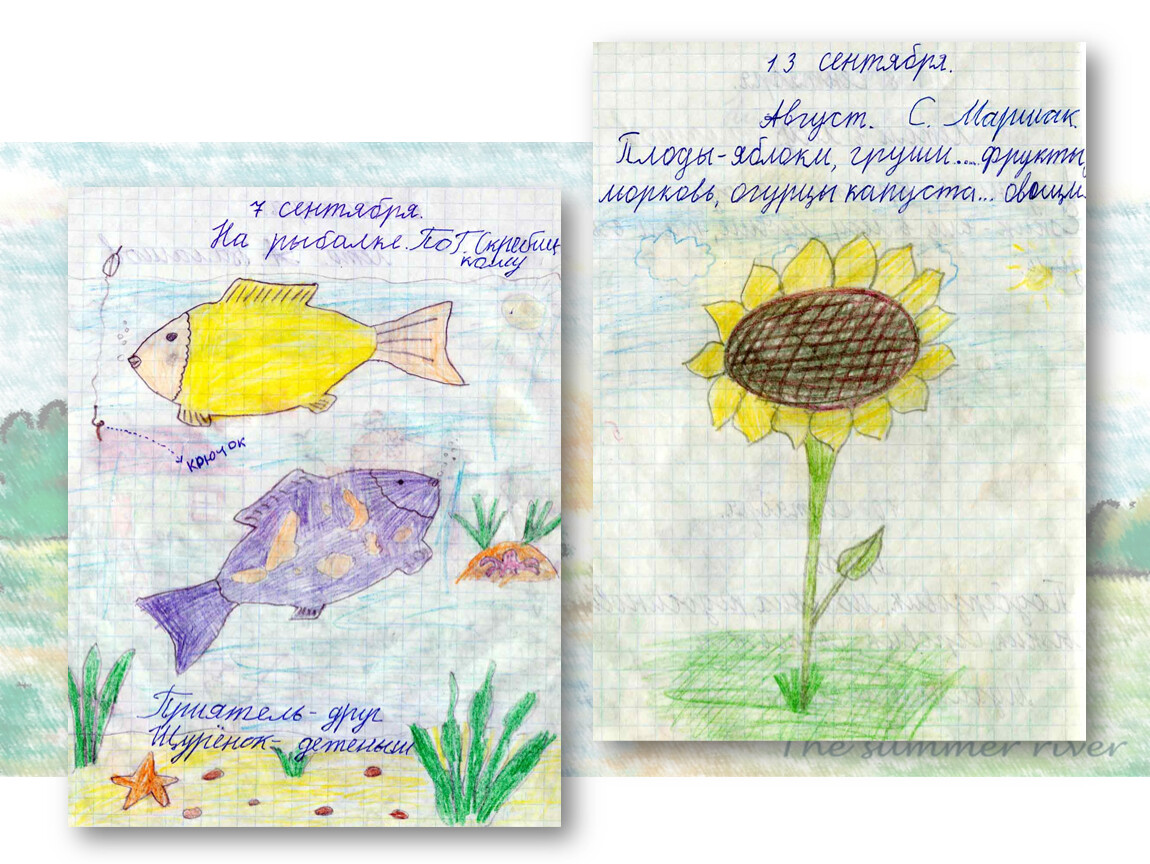 7 сентября.
На рыбалке. По Г. Скребиц
кому
крючок
Приятель - друг
Щурёнок - детеныш
13 сентября.
Август. С. Маршак.
Плоды - яблоки, груши... фрукты,
морковь, огурцы капуста... овощи.
The summer river